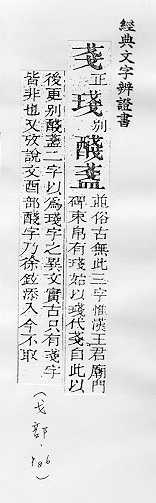 經典文字辨證書
戔正琖別醆盞並俗古無此三字惟漢王君廟門
碑束帛有琖始以琖代戔自此以
後更別醆盞二字以為琖字之異文實古只有戔字
皆非也又攷說文酉部醆字乃徐鉉添入今不取
(戈部.